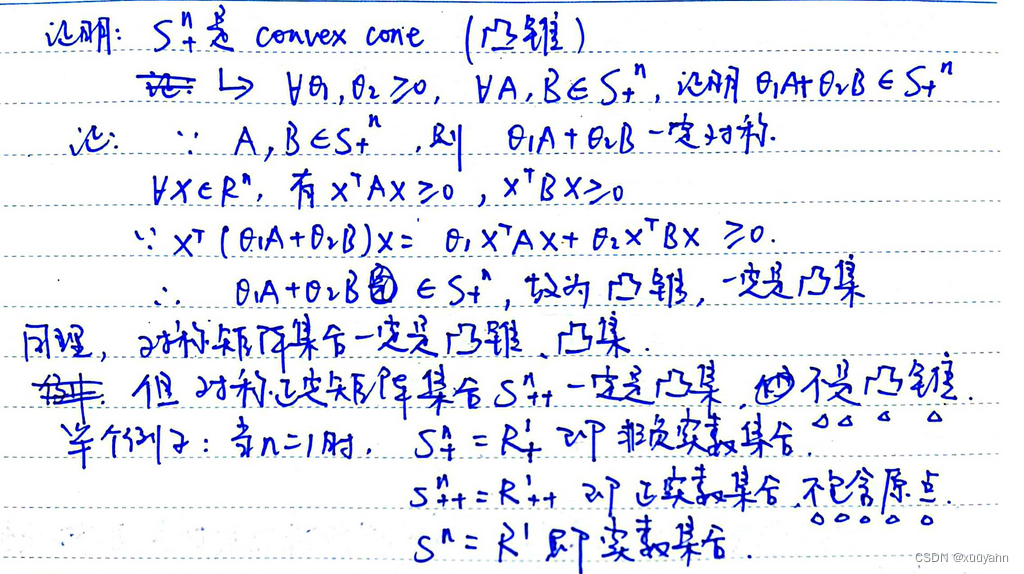 证明: S₊ⁿ是 convex cone (凸锥)
↳ ∀θ₁,θ₂≥0, ∀A,B∈S₊ⁿ, 证明 θ₁A+θ₂B∈S₊ⁿ
证: ∵ A,B∈S₊ⁿ, 则 θ₁A+θ₂B 一定对称.
∀X∈Rⁿ, 有 XᵀAX≥0, XᵀBX≥0
∵ Xᵀ(θ₁A+θ₂B)X= θ₁XᵀAX+θ₂XᵀBX ≥0.
∴ θ₁A+θ₂B ∈S₊ⁿ, 故为凸锥, 一定是凸集
同理, 对称矩阵集合一定是凸锥、凸集.
但对称正定矩阵集合 S₊₊ⁿ 一定是凸集, 不是凸锥.
举个例子: 当n=1时, S₊ⁿ=R₊¹ 即 非负实数集合.
S₊₊ⁿ=R₊₊¹ 即 正实数集合,不包含原点.
Sⁿ=R¹ 即 实数集合.
CSDN @xuuyann